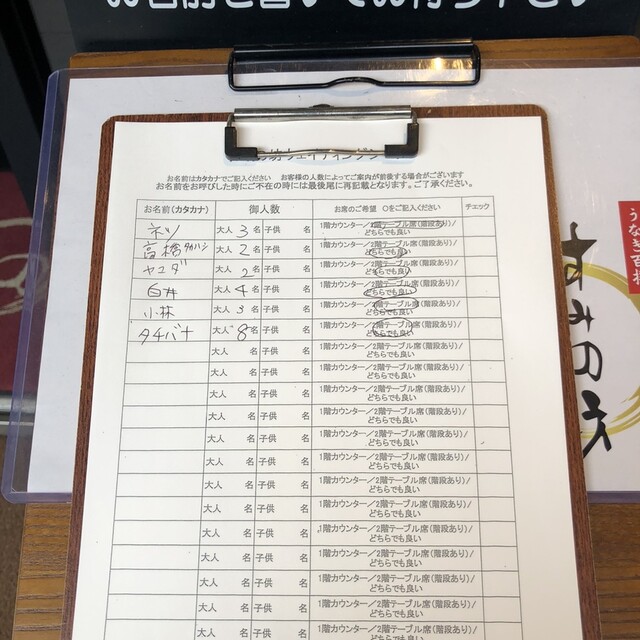 お名前を書いてお待ち下さい
ウェイティング
お名前はカタカナでご記入ください お客様の人数によってご案内が前後する場合がございます
お名前をお呼びした時にご不在の時には最後尾に再記載となります。ご了承ください。
お名前(カタカナ) 御人数 お席のご希望 ○をご記入ください チェック
ネツ 大人 3 名 子供 名 1階カウンター/2階テーブル席(階段あり)/
どちらでも良い
高橋 タカハシ 大人 2 名 子供 名 1階カウンター/2階テーブル席(階段あり)/
どちらでも良い
大人 2 名 子供 名 1階カウンター/2階テーブル席(階段あり)/
どちらでも良い
白井 大人 4 名 子供 名 1階カウンター/2階テーブル席(階段あり)/
どちらでも良い
小林 大人 3 名 子供 名 1階カウンター/2階テーブル席(階段あり)/
どちらでも良い
タチバナ 大人 8 名 子供 名 1階カウンター/2階テーブル席(階段あり)/
どちらでも良い
大人 名 子供 名 1階カウンター/2階テーブル席(階段あり)/
どちらでも良い
大人 名 子供 名 1階カウンター/2階テーブル席(階段あり)/
どちらでも良い
大人 名 子供 名 1階カウンター/2階テーブル席(階段あり)/
どちらでも良い
大人 名 子供 名 1階カウンター/2階テーブル席(階段あり)/
どちらでも良い
大人 名 子供 名 1階カウンター/2階テーブル席(階段あり)/
どちらでも良い
大人 名 子供 名 1階カウンター/2階テーブル席(階段あり)/
どちらでも良い
大人 名 子供 名 1階カウンター/2階テーブル席(階段あり)/
どちらでも良い
大人 名 子供 名 1階カウンター/2階テーブル席(階段あり)/
どちらでも良い
大人 名 子供 名 1階カウンター/2階テーブル席(階段あり)/
どちらでも良い
大人 名 子供 名 1階カウンター/2階テーブル席(階段あり)/
どちらでも良い
大人 名 子供 名 1階カウンター/2階テーブル席(階段あり)/
うなぎ百撰
すみの